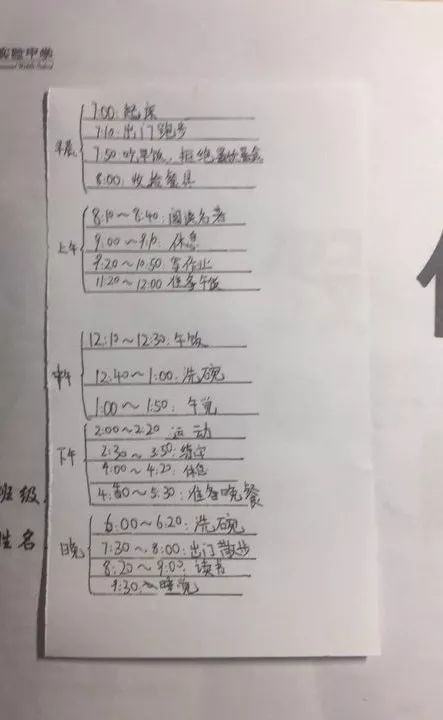 实验中学
早晨
7:00 起床
7:10 出门跑步
7:50 吃早饭，拒绝
8:00: 收拾餐具
上午
8:10～8:40: 阅读名著
9:00～9:10: 休息
9:20～10:50: 写作业
11:20～12:00 准备午饭
中午
12:10～12:30: 午饭
12:40～1:00: 洗碗
1:00～1:50: 午觉
下午
2:00～2:20 运动
2:30～3:50: 练字
4:00～4:20: 休息
4:50～5:30: 准备晚餐
晚
6:00～6:20: 洗碗
7:30～8:00: 出门散步
8:20～9:00: 读书
9:30～睡觉
班级
姓名